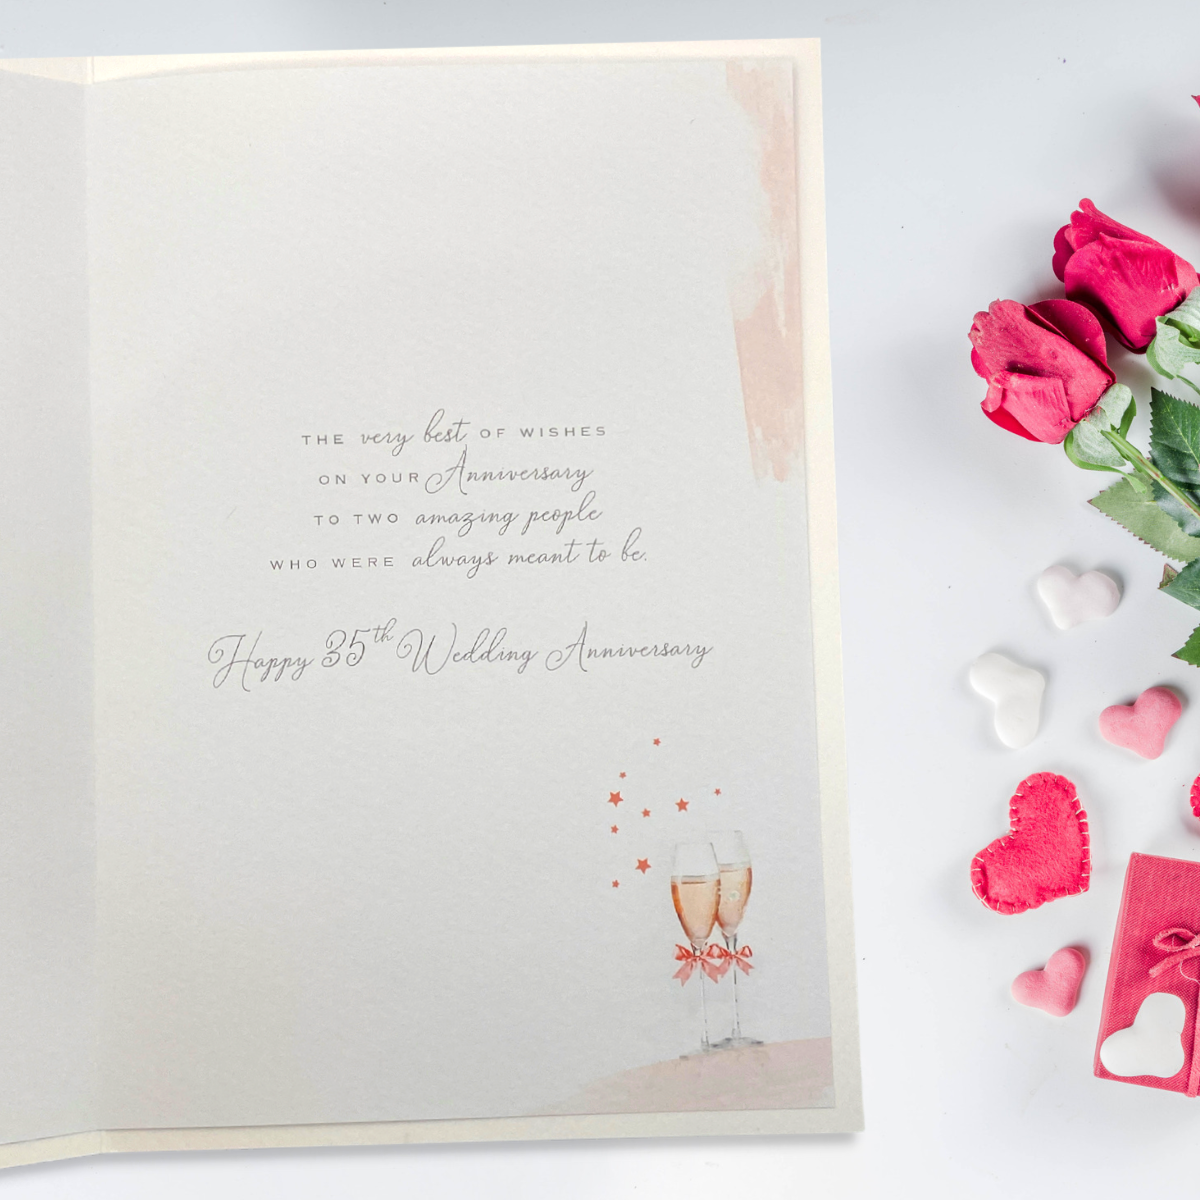 THE very best OF WISHES
ON YOUR Anniversary
TO TWO amazing people
WHO WERE always meant to be.
Happy 35th Wedding Anniversary